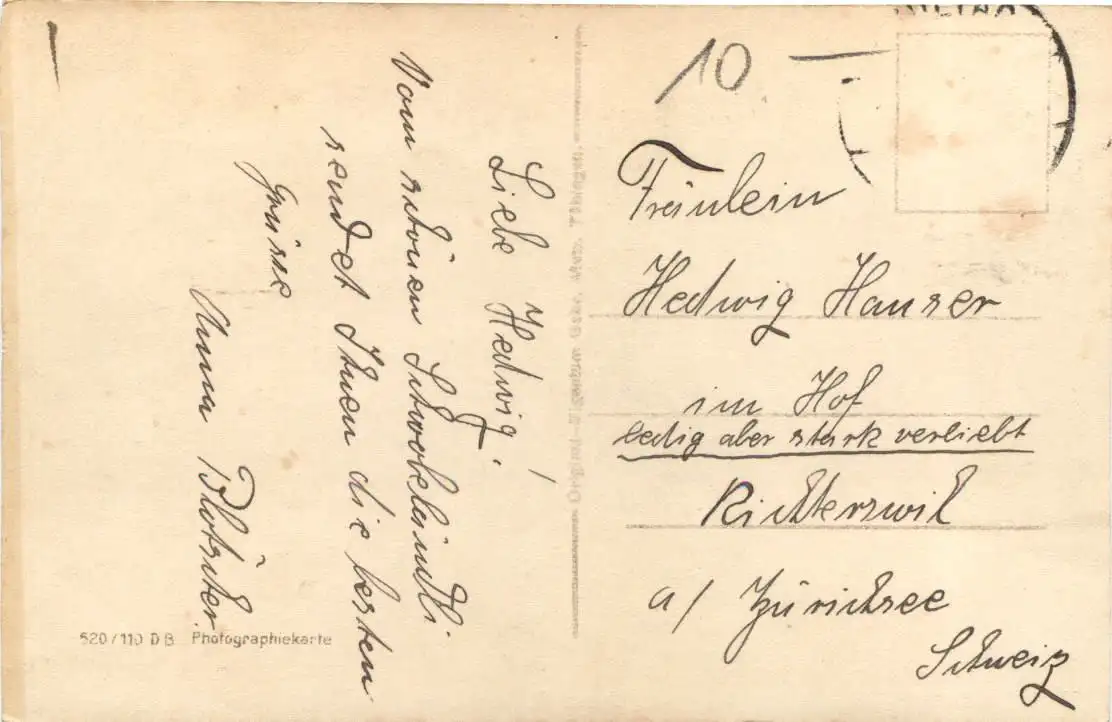 10
Liebe Hedwig!
Vom schönen Schwobeländli
sendet Ihnen die besten
Grüsse
Anna Blotscher.
Fräulein
Hedwig Hauser
im Hof
ledig aber stark verliebt
Richterswil
a/ Zürichsee
Schweiz
520/110 DB Photographiekarte